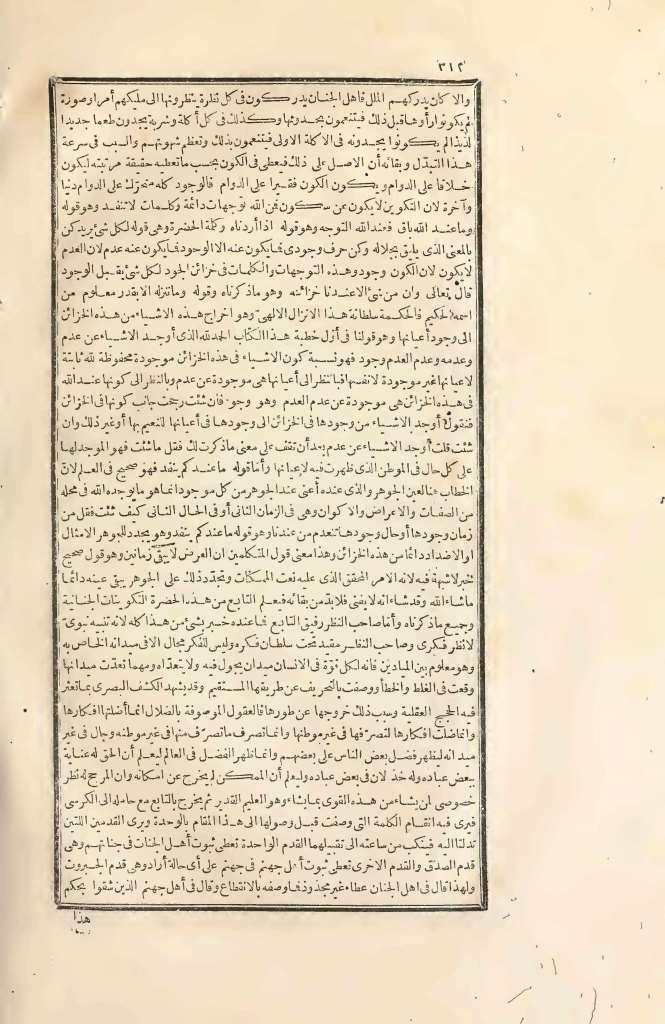 ٣١٢
والا كان يدركهم الملل فاهل الجنان يدركون فى كل نظرة ينظرونها الى ملكهم أمرا وصورة
لم يكونوا رأوها قبل ذلك فيتنعمون بحدوثها وكذلك فى كل أكلة وشربة يجدون طعما جديدا
لذيذا لم يكونوا يجدونه فى الاكلة الاولى فيتنعمون بذلك وتعظم شهوتهم والسبب فى سرعة
هذا التبدّل وبقائه أن الاصل على ذلك فيعطى فى الكون بحسب ما تعطيه حقيقة مرتبته ليكون
خلاقا على الدوام ويكون الكون فقيرا على الدوام فالوجود كله متحرّك على الدوام دنيا
وآخرة لان التكوين لا يكون عن سكون فمن الله توجهات دائمة وكلمات لا تنفد وهو قوله
وما عند الله باق فعند الله التوجه وهو قوله اذا أردناه وكلمة الحضرة وهى قوله لكل شئ يريده كن
بالمعنى الذى يليق بجلاله وكن حرف وجودى فما يكون عنه الا الوجود فما يكون عنه عدم لان العدم
لا يكون لان الكون وجود وهذه التوجهات والكلمات فى خزائن الجود لكل شئ يقبل الوجود
قال تعالى وان من شئ الا عندنا خزائنه وهو ما ذكرناه وقوله وما ننزله الا بقدر معلوم من
اسمه الحكيم فالحكمة سلطانة هذا الانزال الالهى وهو اخراج هذه الاشياء من هذه الخزائن
الى وجود أعيانها وهو قولنا فى أول خطبة هذا الكتاب الحمد لله الذى أوجد الاشياء عن عدم
وعدمه وعدم العدم وجود فهو نسبة كون الاشياء فى هذه الخزائن موجودة محفوظة لله ثابتة
لاعيانها غير موجودة لانفسها فبالنظر الى أعيانها هى موجودة عن عدم وبالنظر الى كونها عند الله
فى هذه الخزائن هى موجودة عن عدم العدم وهو وجود فان شئت رجحت جانب كونها فى الخزائن
فنقول أوجد الاشياء من وجودها فى الخزائن الى وجودها فى أعيانها للنعيم بها أو غير ذلك وان
شئت قلت أوجد الاشياء عن عدم بعد أن تقف على معنى ما ذكرت لك فقل ما شئت فهو الموجد لها
على كل حال فى الموطن الذى ظهرت فيه لاعيانها وأما قوله ما عندكم ينفد فهو صحيح فى العلم لانّ
الخطاب هنا لعين الجوهر والذى عنده أعنى عند الجوهر من كل موجود انما هو ما يوجده الله فى محله
من الصفات والاعراض والاكوان وهى فى الزمان الثانى أو فى الحال الثانى كيف شئت فقل من
زمان وجودها أو حال وجودها تنعدم من عندنا وهو قوله ما عندكم ينفد وهو يجدد للجوهر الامثال
او الاضداد دائما من هذه الخزائن وهذا معنى قول المتكلمين ان العرض لا يبقى زمانين وهو قول صحيح
خبر لا شبهة فيه لانه الامر المحقق الذى عليه نعت الممكنات وبتجدّد ذلك على الجوهر يبقى عينه دائما
ما شاء الله وقد شاء انه لا يفنى فلا بدّ من بقائه فيعلم التابع من هذه الحضرة التكوينات الجنانية
وجميع ما ذكرناه وأما صاحب النظر رفيق التابع فما عنده خبر بشئ من هذا كله لانه تنبيه نبوىّ
لا نظر فكرى وصاحب النظر مقيد تحت سلطان فكره وليس للفكر مجال الا فى ميدانه الخاص به
وهو معلوم بين الميادين فانه لكل قوّة فى الانسان ميدان يجول فيه ولا يتعدّاه ومهما تعدّت ميدانها
وقعت فى الغلط والخطأ ووصفت بالتحريف عن طريقها المستقيم وقد يشهد الكشف البصرى بما تعثر
فيه الحجج العقلية وسبب ذلك خروجها عن طورها فالعقول الموصوفة بالضلال انما أضلتها افكارها
وانما ضلت افكارها لتصرفها فى غير موطنها وانما تصرف ما تصرّف منها فى غير موطنه وجال فى غير
ميدانه ليظهر فضل بعض الناس على بعضهم وانما ظهر الفضل فى العالم ليعلم أن الحق له عناية
ببعض عباده وله خذلان فى بعض عباده وليعلم أن الممكن لم يخرج عن امكانه وان المرجح له نظر
خصوصى لمن يشاء من هذه القوى بما يشاء وهو العليم القدير ثم يخرج بالتابع مع حامله الى الكرسى
فيرى فيه انقسام الكلمة التى وصفت قبل وصولها الى هذا المقام بالوحدة ويرى القدمين اللتين
تدلتا اليه فينكب من ساعته الى تقبيلهما القدم الواحدة تعطى ثبوت أهل الجنات فى جناتهم وهى
قدم الصدق والقدم الاخرى تعطى ثبوت أهل جهنم فى جهنم على أى حالة أراد وهى قدم الجبروت
ولهذا قال فى اهل الجنان عطاء غير مجذوذ فما وصفه بالانقطاع وقال فى أهل جهنم الذين شقوا بحكم
هذا